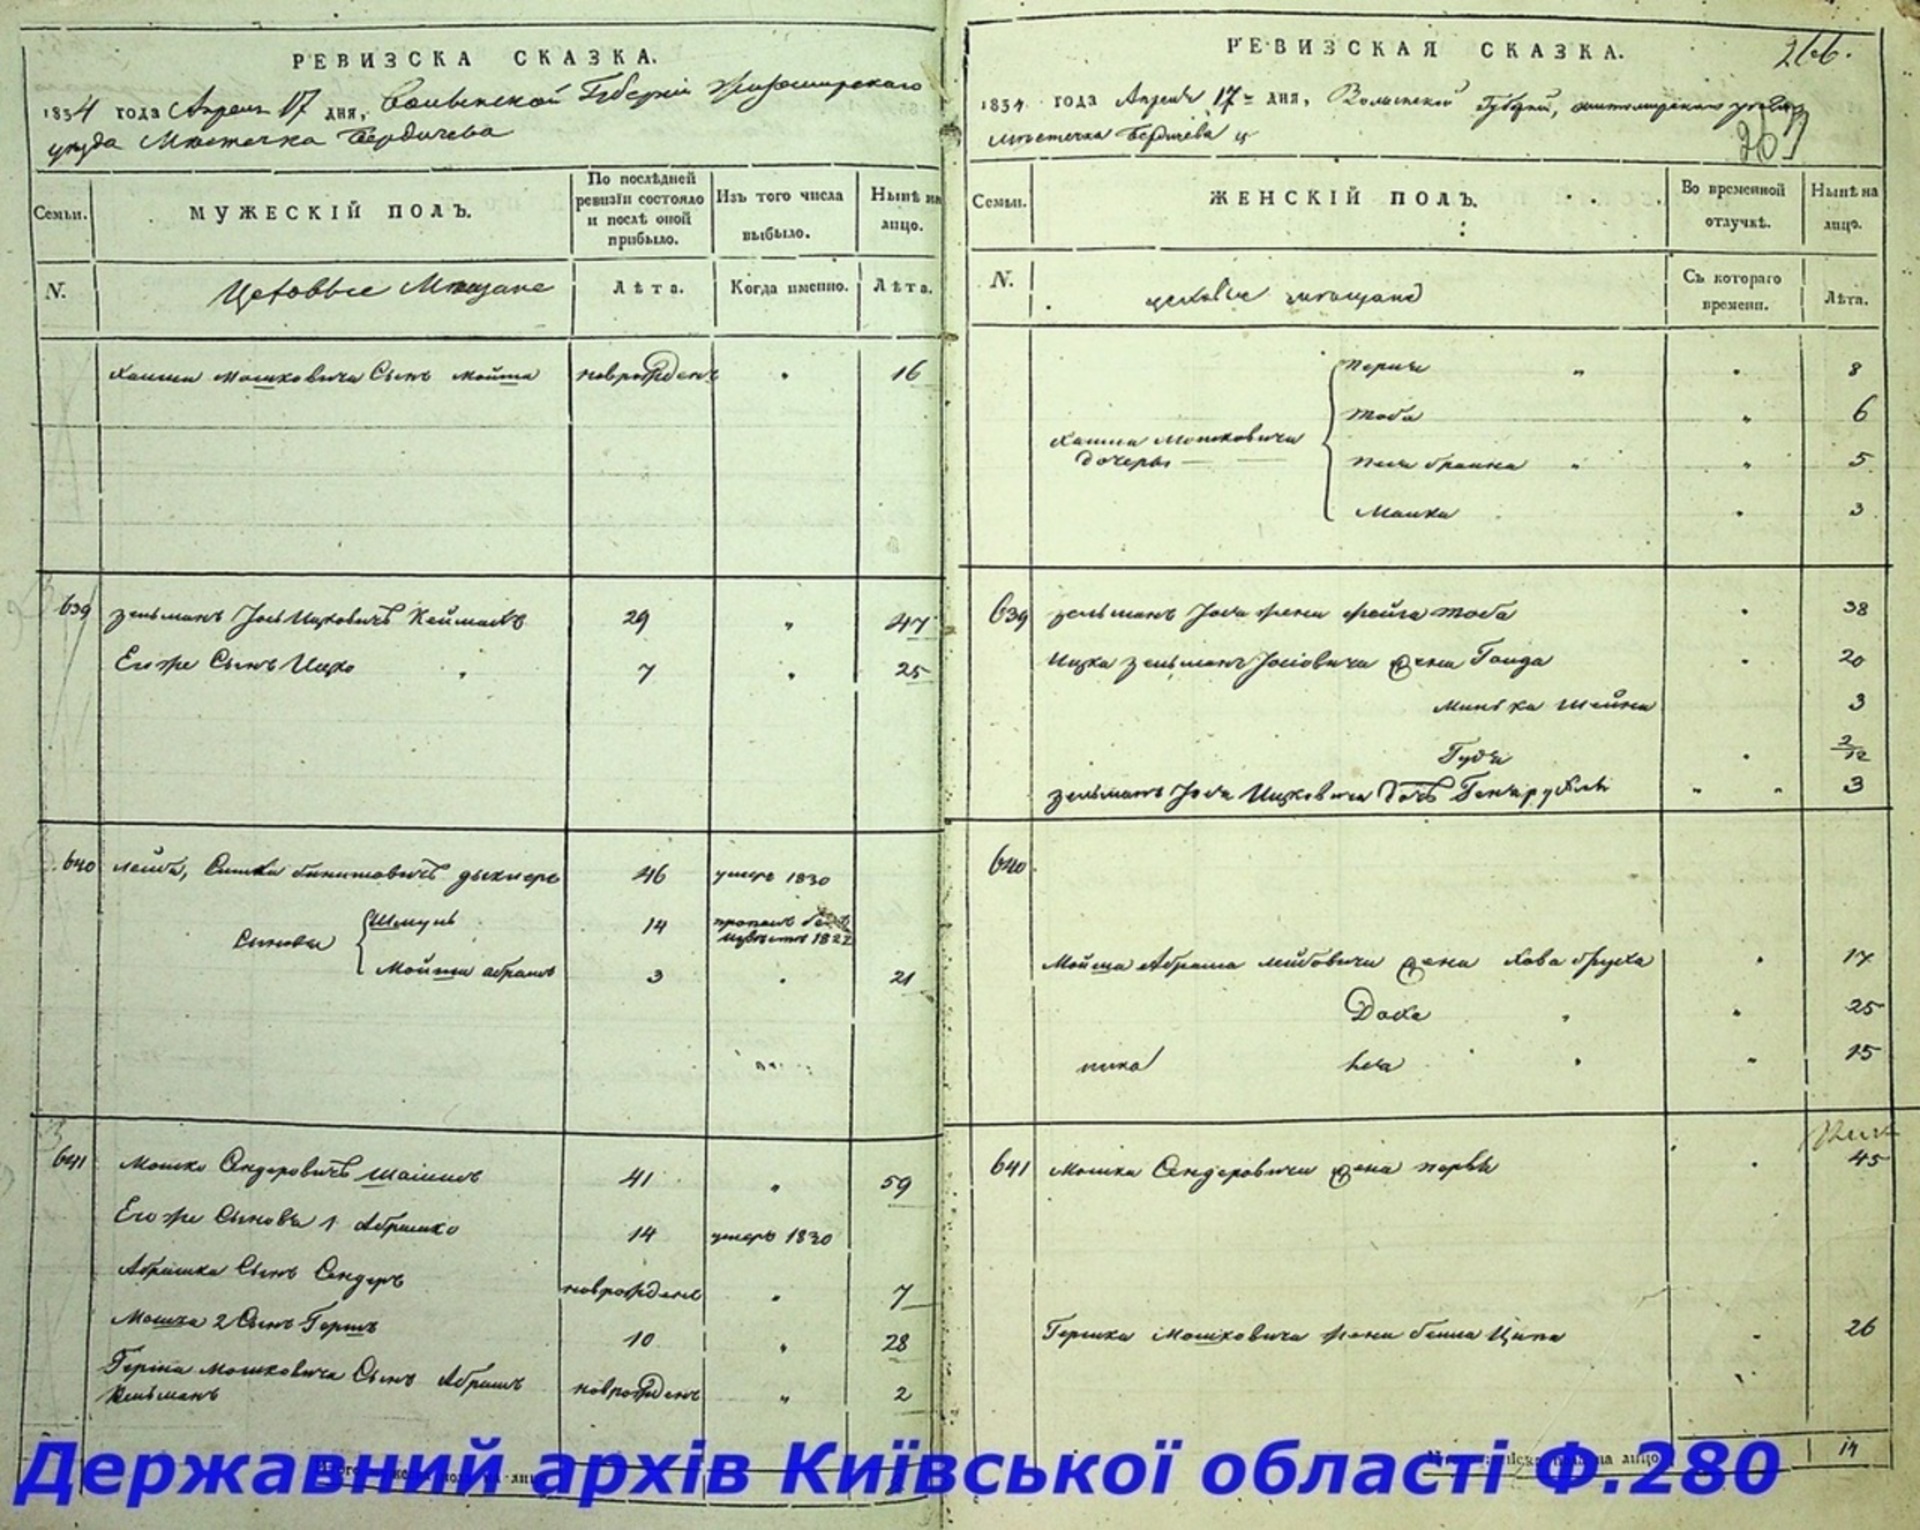 РЕВИЗСКА СКАЗКА.
1834 года Апреля 17 дня, Волынской Губернии Житомирского
уезда Местечка Бердичева
Семьи.
МУЖЕСКІЙ ПОЛЪ.
По послѣдней ревизіи состояло и послѣ оной прибыло.
Изъ того числа выбыло.
Нынѣ на лицо.
N.
Цеховые Мещане
Лѣта.
Когда именно.
Лѣта.
Мошковича Сынъ Мойша новорожденъ 16
639 Зельманъ Іось Ицковичъ 29 " 47
Его же Сынъ Ицко " 7 " 25
640 Лейба, 46 умеръ 1830
Сыновья Шмуль 14 пропалъ безъ извести 1827
Мойша Абрамъ 3 21
641 Мошко Сендеровичъ 41 " 59
Его же Сыновья 1 Абрашко 14 умеръ 1830
Абрашка Сынъ Сендеръ новорожденъ " 7
Мошка 2 Сынъ Гершъ 10 " 28
Мошковича Сынъ Абрамъ
Зельманъ новорожденъ " 2
РЕВИЗСКАЯ СКАЗКА.
266.
1834 года Апреля 17 дня, Волынской Губерніи, житомирского уезда
местечка Бердичева
267
Семьи.
ЖЕНСКІЙ ПОЛЪ.
Во временной отлучкѣ.
Нынѣ на лицо.
N.
цеховые мещане
Съ котораго времени.
Лѣта.
" 8
Тоба " 6
Мошковича
дочеры
" 5
Малка 3
639 Зельманъ Іося жена Фейга Тоба 38
Ицка Зельманъ Іосіовича жена Голда 20
Минька Шейна 3
2/12
Зельманъ Іося Ицковича дочь " " 3
640
Мойша Абрама Лейбовича жена Хава 17
25
15
641 Мошка Сендеровича жена Перля 45
Гершка Мошковича жена Бейла Ципа 26
14
Державний архів Київської області Ф.280